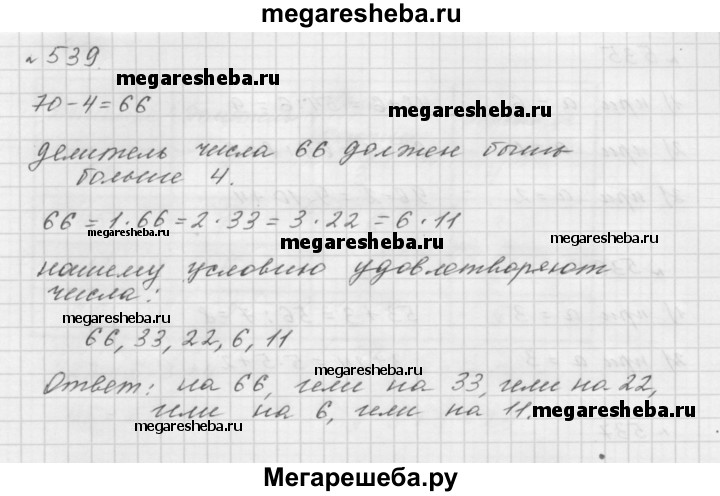 megaresheba.ru
№ 539
megaresheba.ru
70-4=66
делитель числа 66 должен быть
больше 4.
66 = 1·66 = 2·33 = 3·22 = 6·11
megaresheba.ru megaresheba.ru megaresheba.ru
нашему условию удовлетворяют
числа:
megaresheba.ru
66, 33, 22, 6, 11
Ответ: на 66, или на 33, или на 22,
или на 6, или на 11.
megaresheba.ru megaresheba.ru
Мегарешеба.ру